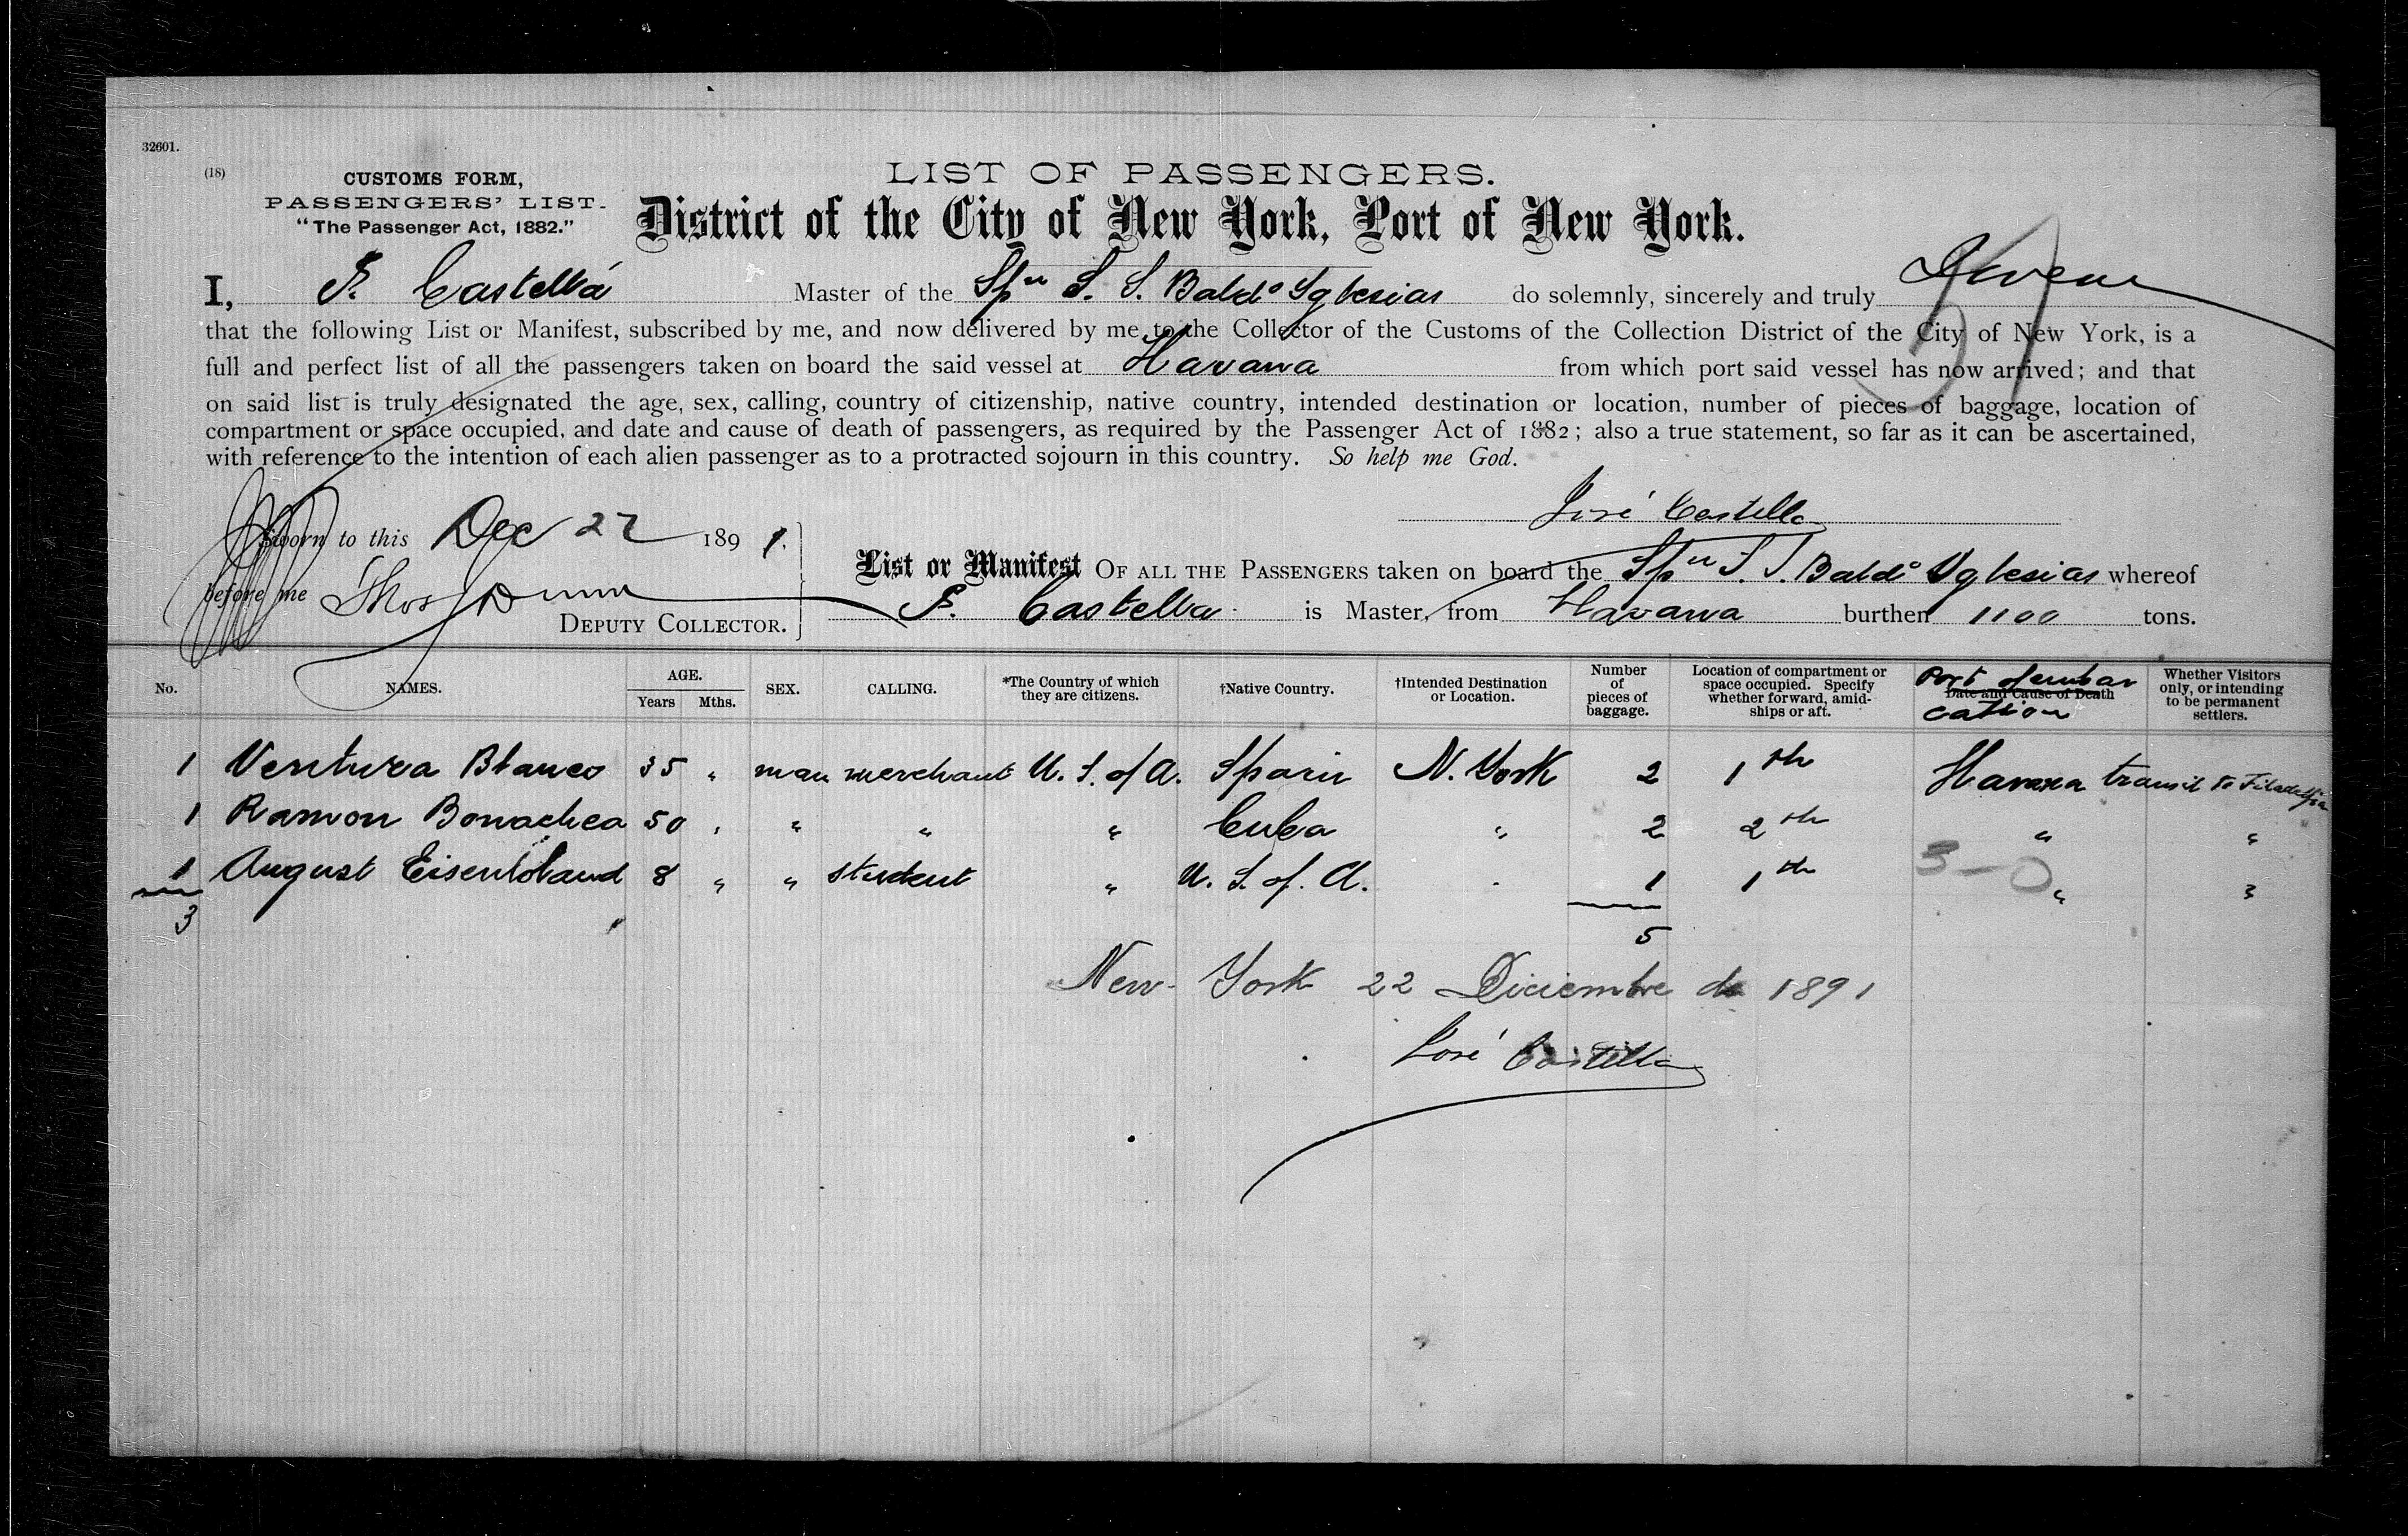 32601.
(18)
CUSTOMS FORM,
PASSENGERS' LIST.
"The Passenger Act, 1882."
LIST OF PASSENGERS.
District of the City of New York, Port of New York.
I, J. Castellá Master of the Spn S. S. Baldo Yglesias do solemnly, sincerely and truly swear
that the following List or Manifest, subscribed by me, and now delivered by me to the Collector of the Customs of the Collection District of the City of New York, is a
full and perfect list of all the passengers taken on board the said vessel at Havana from which port said vessel has now arrived; and that
on said list is truly designated the age, sex, calling, country of citizenship, native country, intended destination or location, number of pieces of baggage, location of
compartment or space occupied, and date and cause of death of passengers, as required by the Passenger Act of 1882; also a true statement, so far as it can be ascertained,
with reference to the intention of each alien passenger as to a protracted sojourn in this country. So help me God.
José Castella
Sworn to this Dec 22 1891.
before me Thos Dunn
DEPUTY COLLECTOR.
List or Manifest OF ALL THE PASSENGERS taken on board the Spn S. S. Baldo Yglesias whereof
J. Castella is Master, from Havana burthen 1100 tons.
No. NAMES. AGE. Years Mths. SEX. CALLING. *The Country of which they are citizens. †Native Country. †Intended Destination or Location. Number of pieces of baggage. Location of compartment or space occupied. Specify whether forward, amidships or aft. Date and Cause of Death Port of embarcation Whether Visitors only, or intending to be permanent settlers.
1 Ventura Blanco 35 " man merchant U. S. of A. Spain N. York 2 1th Havana transit to Filadelfia
1 Ramon Bonachea 50 " " " " Cuba " 2 2th " "
1 August 8 " " student " U. S. of. A. " 1 1th " "
3 5
3-0
New-York 22 Diciembre de 1891
José Castella